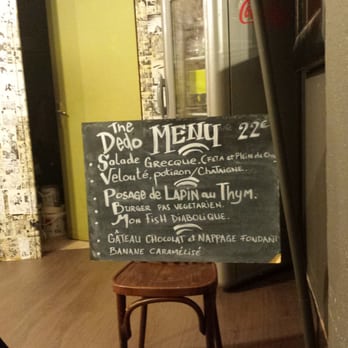 The
Dedo MENU 22€
Salade Grecque. (Feta et Plein de
Velouté, potiron/Chataigne.
Posage de LAPIN au Thym.
Burger pas vegetarien.
Mon Fish Diabolique.
Gâteau Chocolat et Nappage Fondant
Banane caramélisé